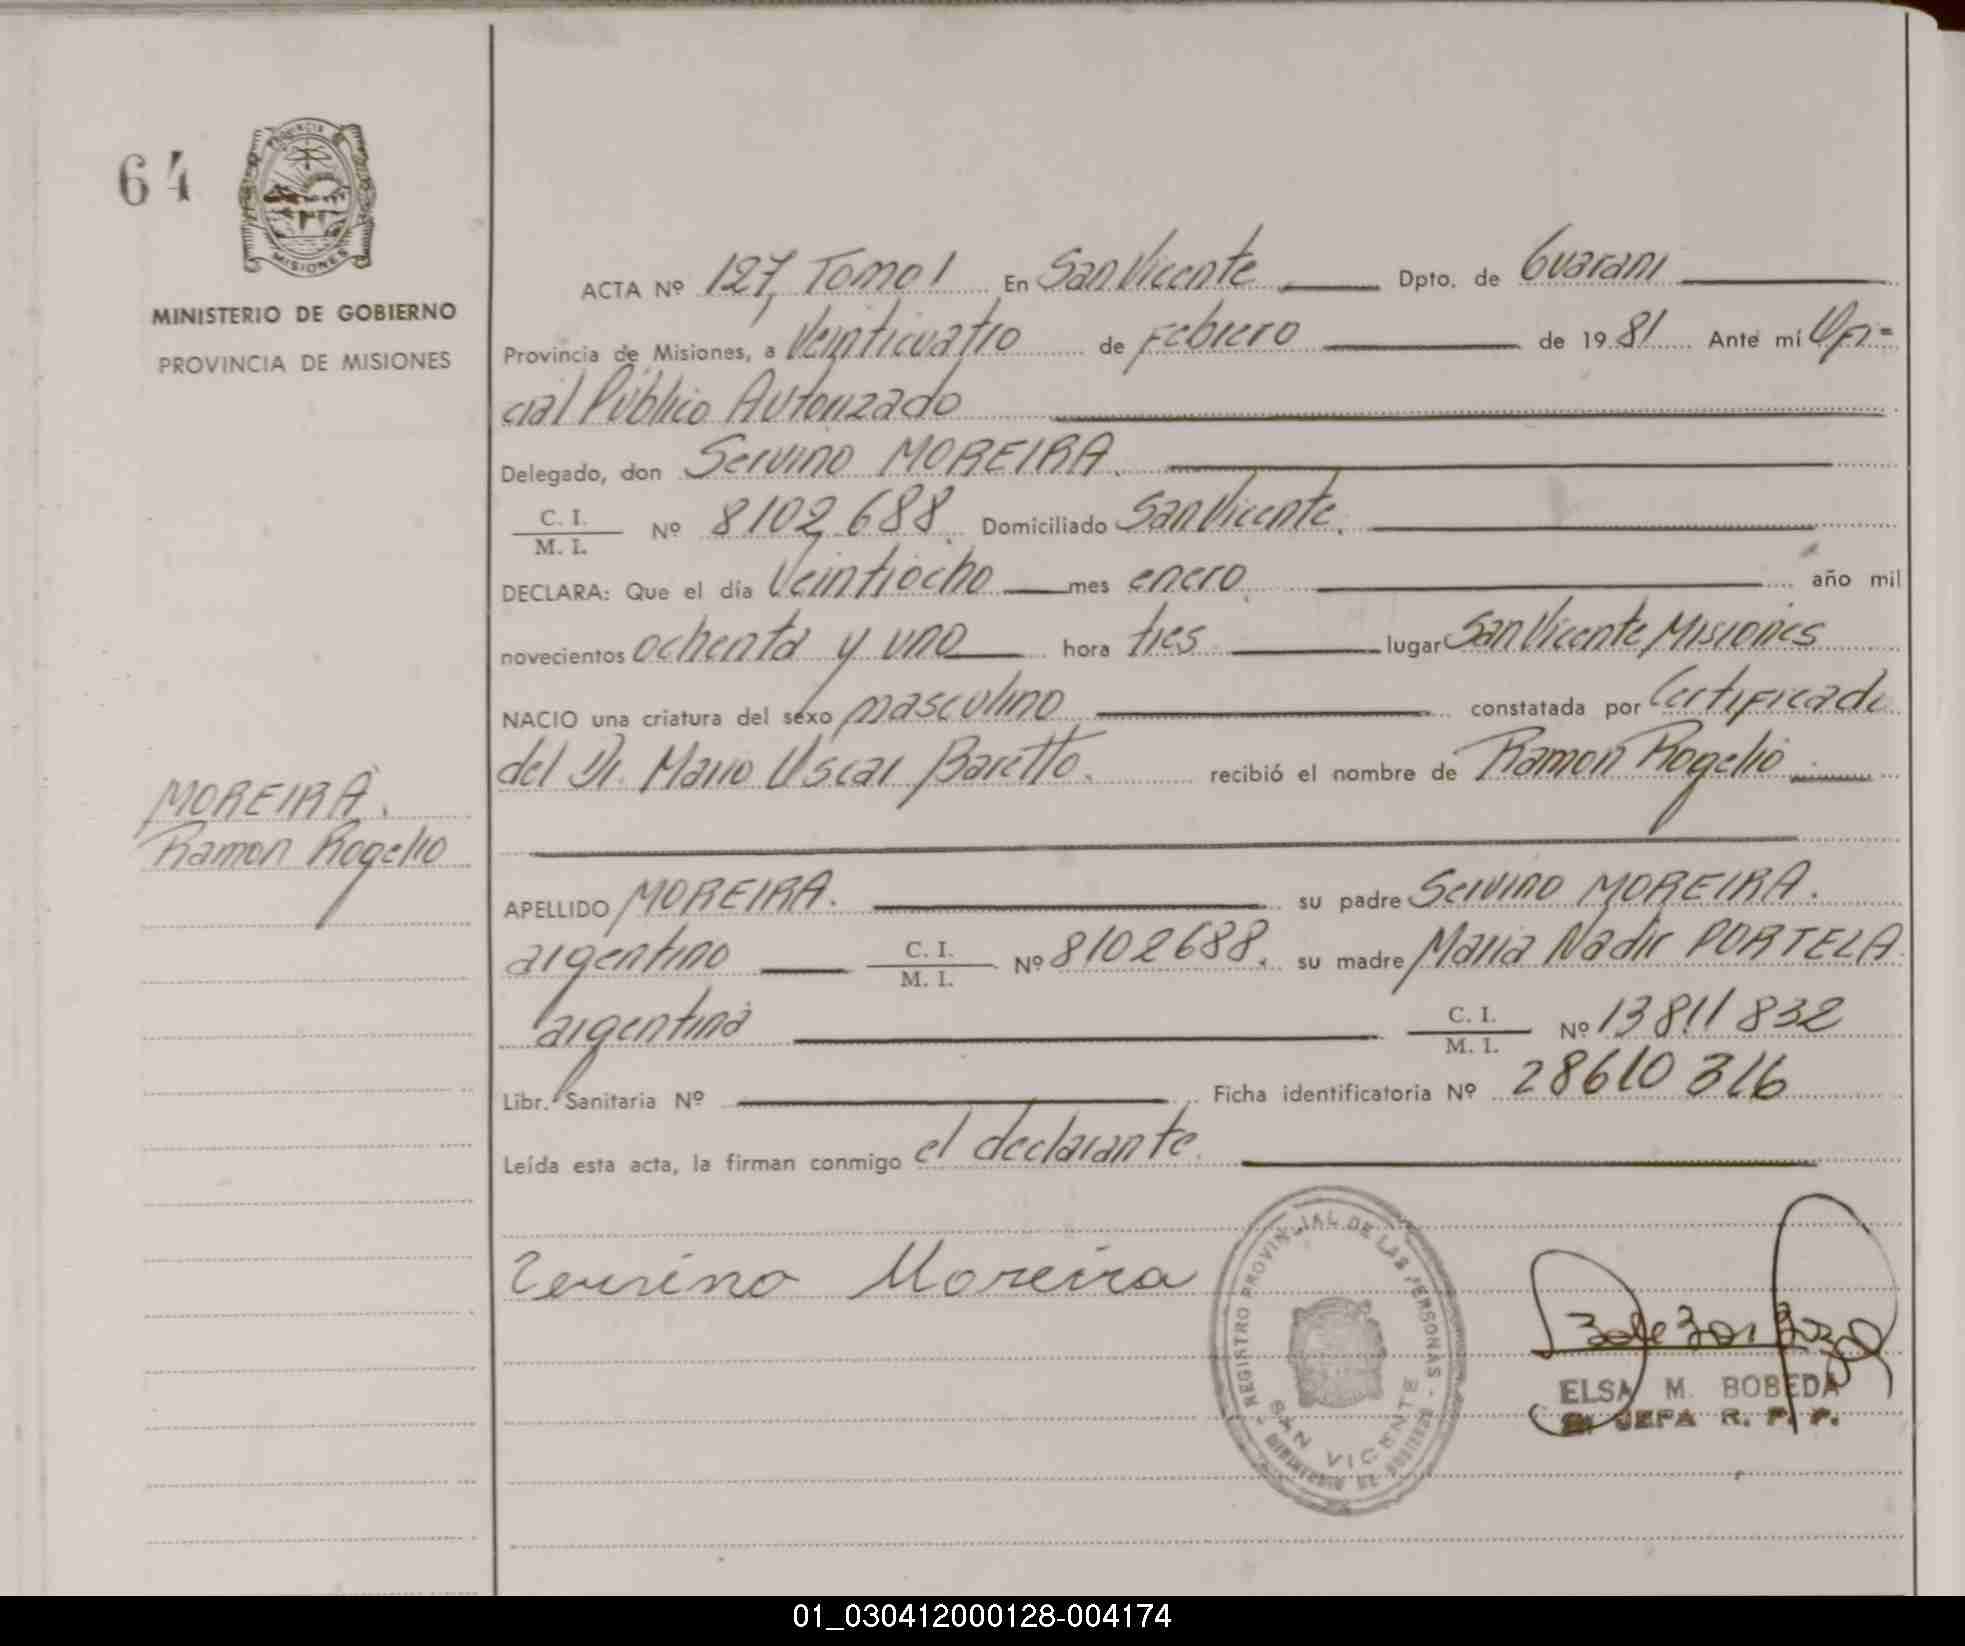 64
PROVINCIA DE
MISIONES
MINISTERIO DE GOBIERNO
PROVINCIA DE MISIONES
MOREIRA.
Ramon Rogelio
ACTA Nº 127, Tomo I En San Vicente Dpto. de Guarani
Provincia de Misiones, a Veinticuatro de Febrero de 1981 Ante mí Ofi=
cial Público Autorizado
Delegado, don Servino MOREIRA.
C. I. / M. I. Nº 8102688. Domiciliado San Vicente.
DECLARA: Que el día Veintiocho mes enero. año mil
novecientos ochenta y uno hora tres lugar San Vicente, Misiones
NACIO una criatura del sexo masculino constatada por Certificado
del Dr. Mario Oscar Baretto. recibió el nombre de Ramon Rogelio
APELLIDO MOREIRA. su padre Servino MOREIRA.
argentino C. I. / M. I. Nº 8102688. su madre Maria Nadir PORTELA
argentina C. I. / M. I. Nº 13811832
Libr. Sanitaria Nº Ficha identificatoria Nº 28610316
Leída esta acta, la firman conmigo el declarante.
Servino Moreira
REGISTRO PROVINCIAL DE LAS PERSONAS - MINISTERIO DE GOBIERNO -
SAN VICENTE
ELSA M. BOBEDA
JEFA R. P. P.
01_030412000128-004174